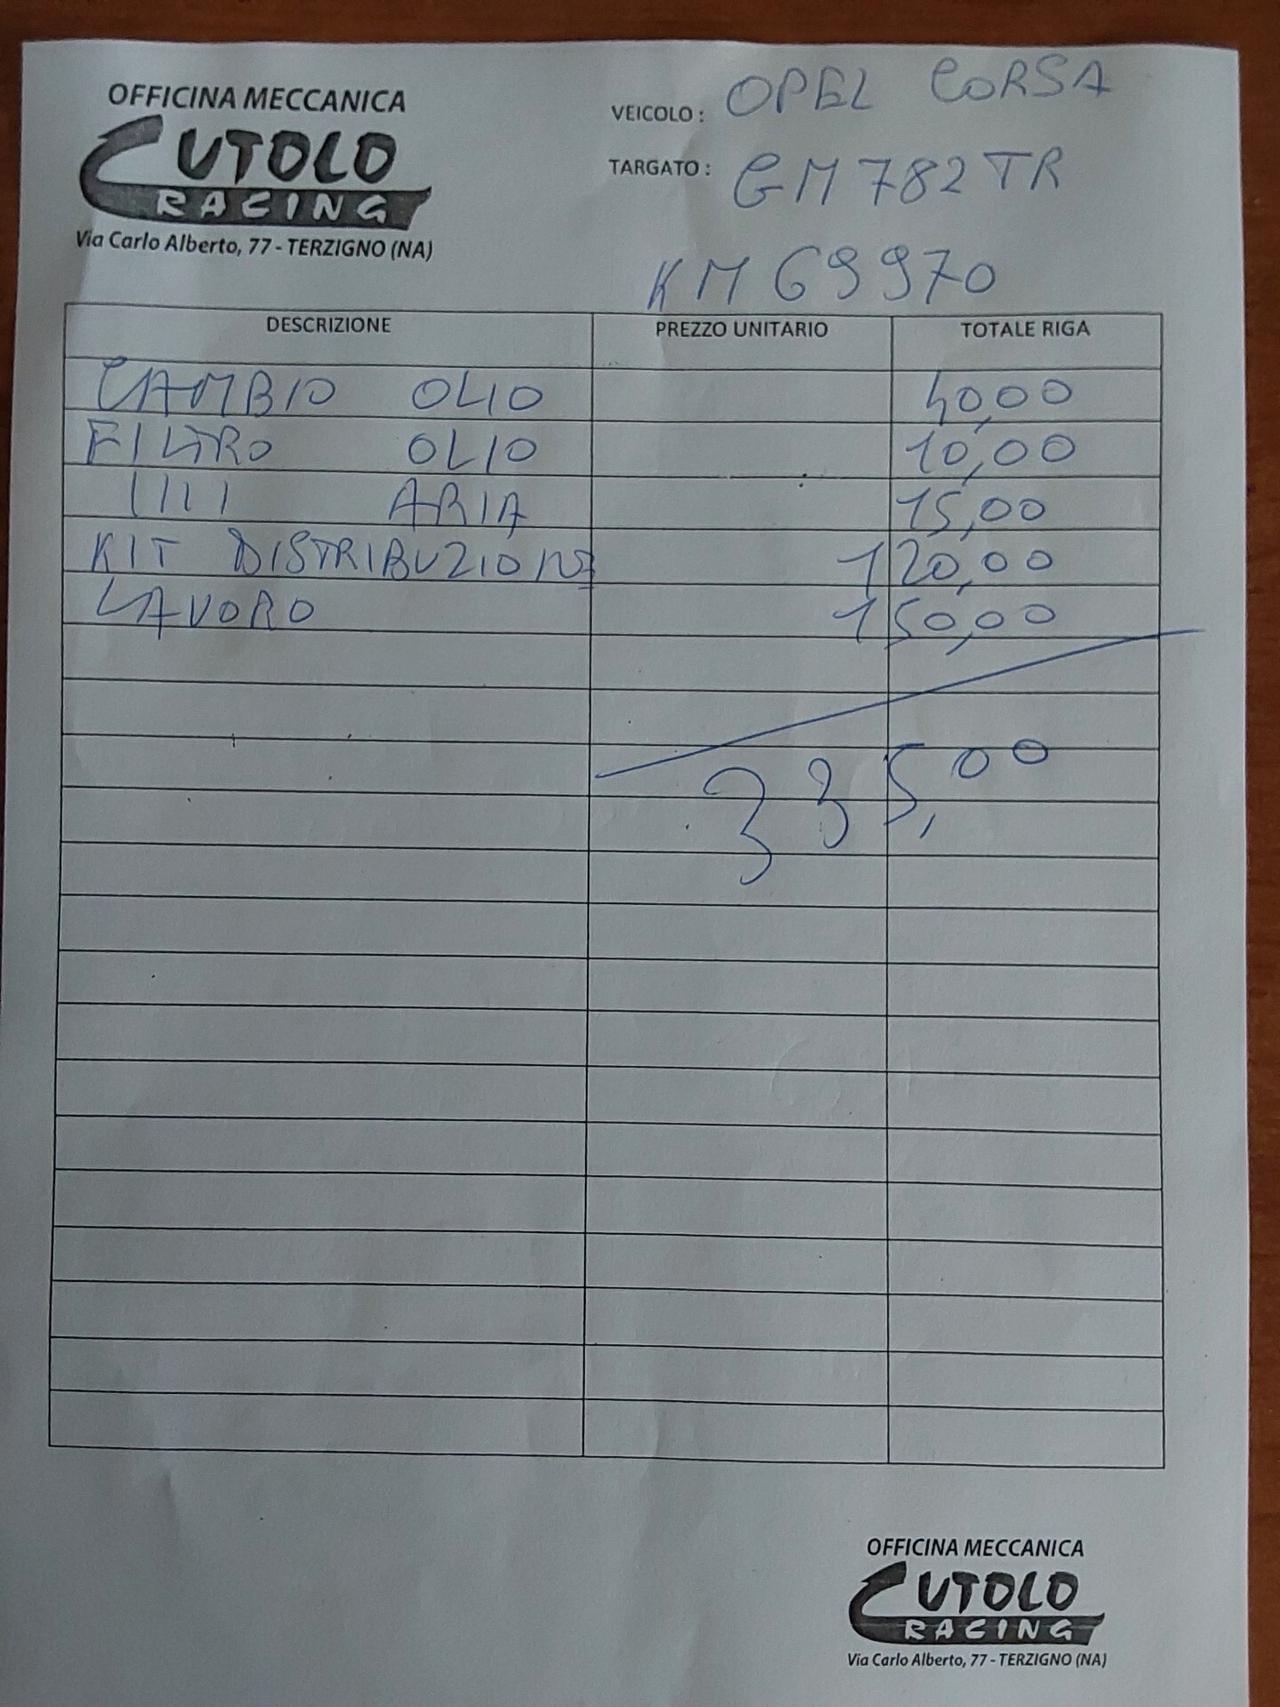 OFFICINA MECCANICA
CUTOLO
RACING
Via Carlo Alberto, 77 - TERZIGNO (NA)
VEICOLO : OPEL CORSA
TARGATO : GM782TR
KM 69970
DESCRIZIONE PREZZO UNITARIO TOTALE RIGA
CAMBIO OLIO 40,00
FILTRO OLIO 10,00
IIII ARIA 15,00
KIT DISTRIBUZIONE 120,00
LAVORO 150,00
335,00
OFFICINA MECCANICA
CUTOLO
RACING
Via Carlo Alberto, 77 - TERZIGNO (NA)